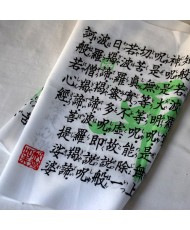 神呪是大明呪是無上
呪是無等等呪能除一
切苦真實不虚故説般
若波羅蜜多呪即説呪
曰揭諦揭諦波羅揭諦
波羅僧揭諦菩提娑婆
訶般若心經